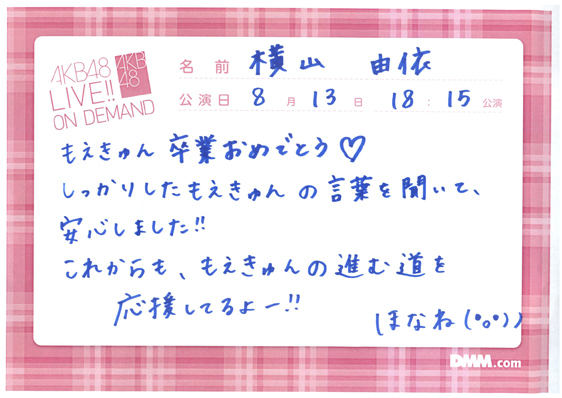 AKB48
LIVE!!
ON DEMAND
AKB
48
名前 横山 由依
公演日 8月13日 18:15公演
もえきゅん 卒業おめでとう♡
しっかりしたもえきゅんの言葉を聞いて、
安心しました!!
これからも、もえきゅんの進む道を
応援してるよー!!
ほなね(•o•))
DMM.com